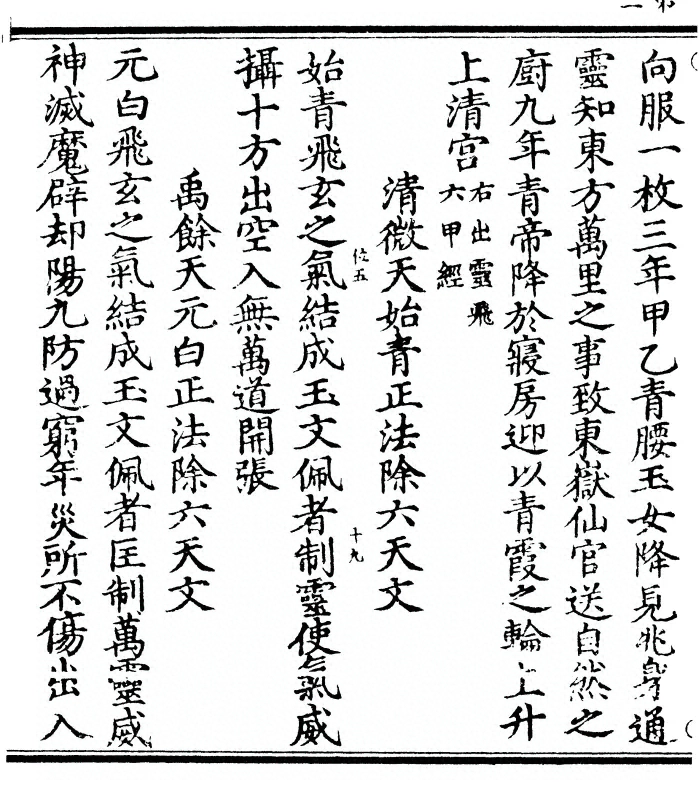 向服一枚三年甲乙青腰玉女降見兆身通
靈知東方萬里之事致東嶽仙官送自然之
廚九年青帝降於寢房迎以青霞之輪上升
上清宮
右出靈飛
六甲經
清微天始青正法除六天文
始青飛玄之氣結成玉文佩者制靈使氣威
位五
十九
攝十方出空入無萬道開張
禹餘天元白正法除六天文
元白飛玄之氣結成玉文佩者匡制萬靈威
神滅魔辟却陽九防過窮年災所不傷出入